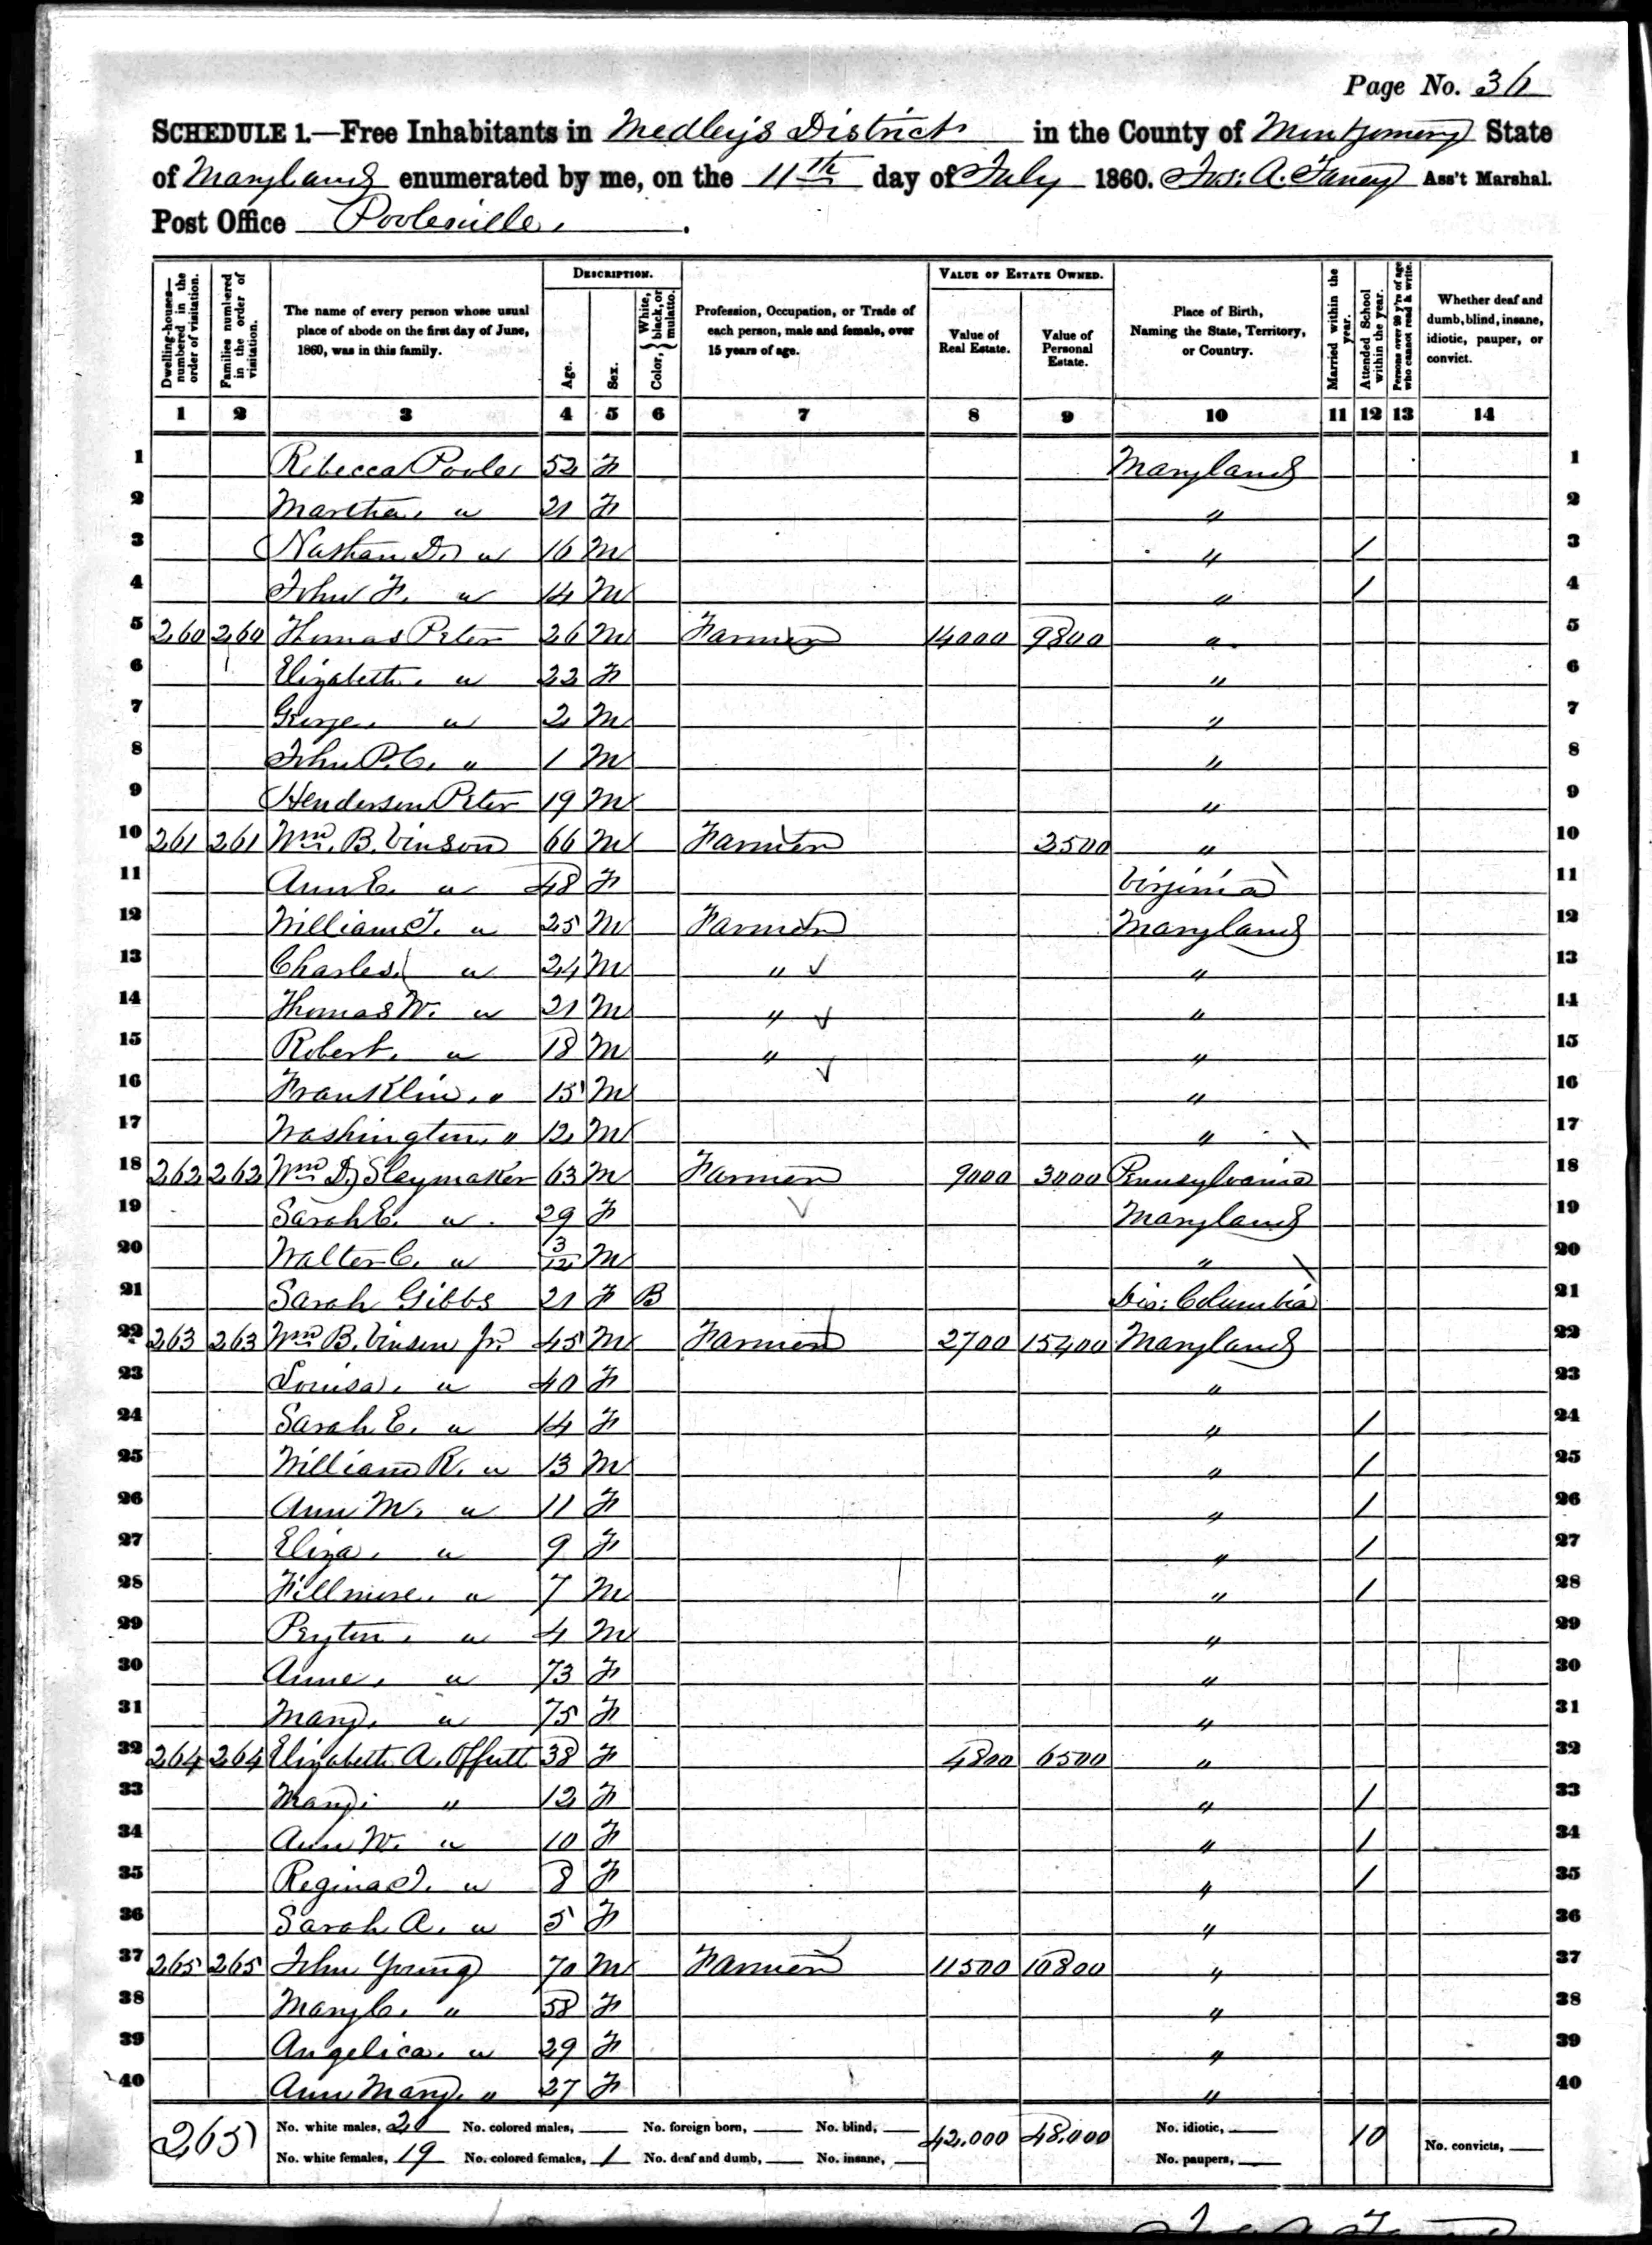 Page No. 36
SCHEDULE 1.—Free Inhabitants in Medley's District in the County of Montgomery State
of Maryland enumerated by me, on the 11th day of July 1860. Ass't Marshal.
Post Office Poolesville.
Dwelling-houses—numbered in the order of visitation.
Families numbered in the order of visitation.
The name of every person whose usual place of abode on the first day of June, 1860, was in this family.
DESCRIPTION.
Age.
Sex.
Color, { White, black, or mulatto.
Profession, Occupation, or Trade of each person, male and female, over 15 years of age.
VALUE OF ESTATE OWNED.
Value of Real Estate.
Value of Personal Estate.
Place of Birth, Naming the State, Territory, or Country.
Married within the year.
Attended School within the year.
Persons over 20 y'rs of age who cannot read & write.
Whether deaf and dumb, blind, insane, idiotic, pauper, or convict.
1 2 3 4 5 6 7 8 9 10 11 12 13 14
1 Rebecca Poole 52 F Maryland 1
2 Martha " 21 F " 2
3 Nathan D. " 16 M " / 3
4 John F. " 14 M " / 4
5 260 260 Thomas Peter 26 M Farmer 14000 9800 " 5
6 Elizabeth " 22 F " 6
7 George " 2 M " 7
8 John P.C. " 1 M " 8
9 Henderson Peter 19 M " 9
10 261 261 Wm. B. Vinson 66 M Farmer 2500 " 10
11 Ann E. " 48 F Virginia 11
12 William T. " 25 M Farmer Maryland 12
13 Charles " 24 M " " 13
14 Thomas W. " 21 M " " 14
15 Robert " 18 M " " 15
16 Franklin " 15 M " 16
17 Washington " 12 M " 17
18 262 262 Wm D. Slaymaker 63 M Farmer 9000 3000 Pennsylvania 18
19 Sarah E. " 29 F Maryland 19
20 Walter C. " 3/12 M " 20
21 Sarah Gibbs 21 F B Dis: Columbia 21
22 263 263 Wm B. Vinson Jr. 45 M Farmer 2700 15400 Maryland 22
23 Louisa " 40 F " 23
24 Sarah E. " 14 F " / 24
25 William R. " 13 M " / 25
26 Ann M. " 11 F " / 26
27 Eliza " 9 F " / 27
28 Fillmore " 7 M " / 28
29 Peyton " 4 M " 29
30 Anne " 73 F " 30
31 Mary " 75 F " 31
32 264 264 Elizabeth A. Offutt 38 F 4800 6500 " 32
33 Mary " 12 F " / 33
34 Ann W. " 10 F " / 34
35 Regina T. " 8 F " / 35
36 Sarah A. " 5 F " 36
37 265 265 John Young 70 M Farmer 11500 10800 " 37
38 Mary C. " 58 F " 38
39 Angelica " 29 F " 39
40 Ann Mary " 27 F " 40
265 No. white males, 20 No. colored males, No. foreign born, No. blind, 42,000 48,000 No. idiotic, 10
No. white females, 19 No. colored females, 1 No. deaf and dumb, No. insane, No. paupers, No. convicts,